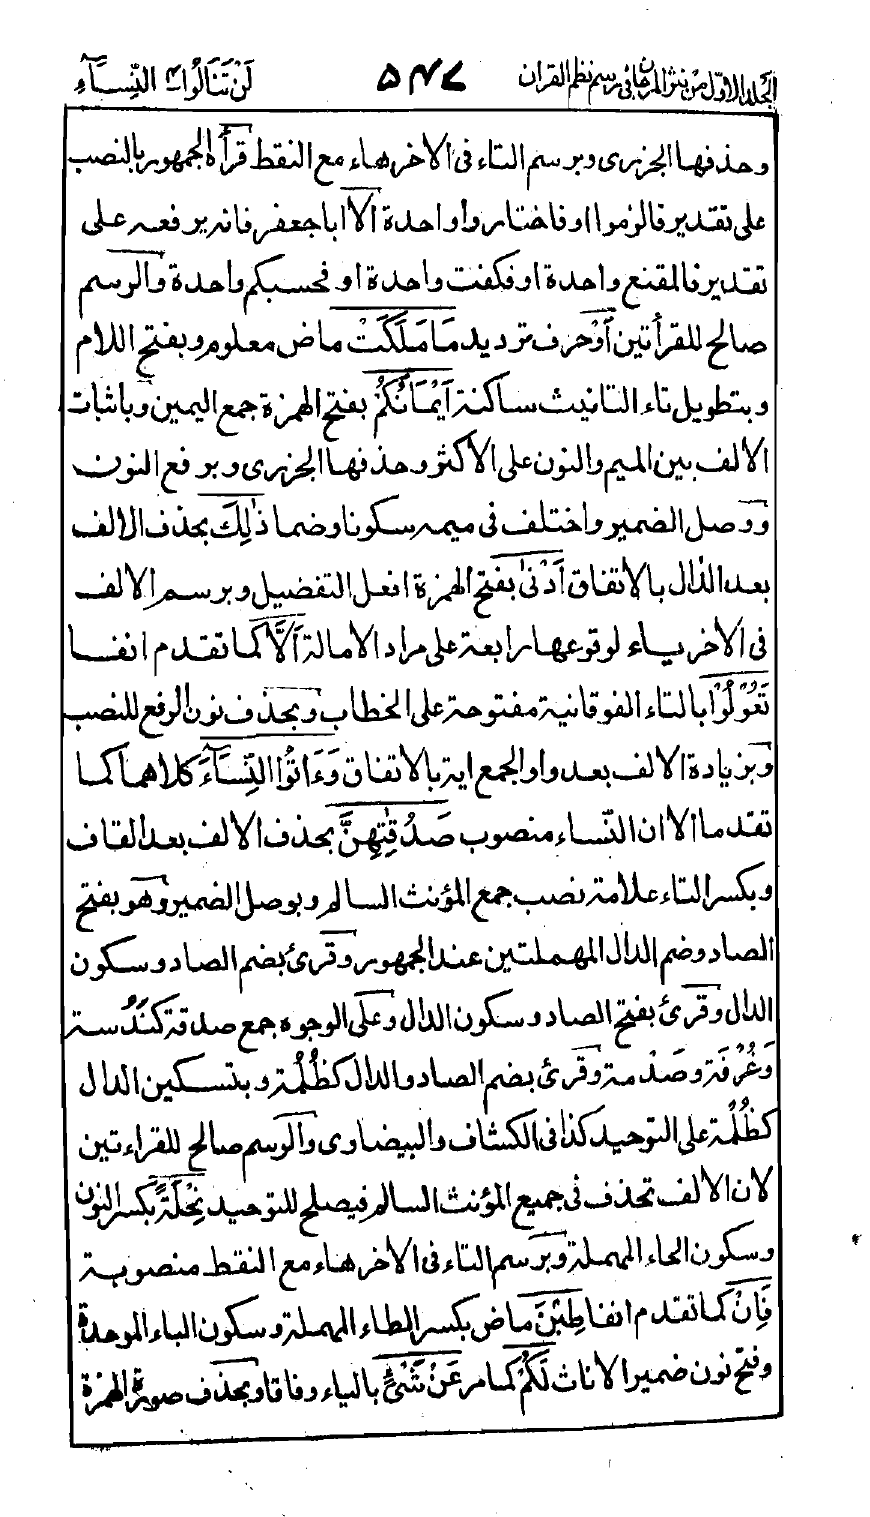 الجلد الاول من نثر المرجان في رسم نظم القران ۵۴۷ لَنْ تَنَالُوا۴ النِّسَآءِ
وحذفها الجزرى وبرسم التاء فى الاخرهاء مع النقط قرأه الجمهور بالنصب
على تقدير فالزموا اوفاختاروا واحدة الا اباجعفر فانه يرفعه على
تقدير فالمقنع واحدة اوفكفت واحدة اوفحسبكم واحدة والرسم
صالح للقرأتين أَوْحرف ترديد مَا مَلَكَتْ ماض معلوم وبفتح اللام
وبتطويل تاء التانيث ساكنة اَيْمَانُكُمْ بفتح الهمزة جمع اليمين وباثبات
الالف بين الميم والنون على الاكثر وحذفها الجزرى وبرفع النون
ووصل الضمير واختلف فى ميمه سكونا وضما ذٰلِكَ بحذف الالف
بعد الذال بالاتفاق اَدْنٰى بفتح الهمزة افعل التفضيل وبرسم الالف
فى الاخرياء لوقوعها رابعة على مراد الامالة اَلَّا كما تقدم انفا
تَعُوْلُوْا بالتاء الفوقانية مفتوحة على الخطاب وبحذف نون الرفع للنصب
وبزيادة الالف بعد واو الجمع اية بالاتفاق وَءَاتُوا النِّسَآءَ كلاهما كما
تقدما الا ان النّساء منصوب صَدُقٰتِهِنَّ بحذف الالف بعد القاف
وبكسر التاء علامة نصب جمع المؤنث السالم وبوصل الضمير وهو بفتح
الصاد وضم الدال المهملتين عند الجمهور وقرئ بضم الصاد وسكون
الدال وقرئ بفتح الصاد وسكون الدال وعلى الوجوه جمع صدقة كَنَدُسة
وَغُرْفَة وصَدْمة وقرئ بضم الصاد والدال كظُلُمة وبتسكين الدال
كظُلُمة على التوحيد كذا فى الكشاف والبيضاوى والرسم صالح للقراءتين
لان الالف تحذف فى جميع المؤنث السالم فيصلح للتوحيد نِحْلَةً بكسر النون
وسكون الحاء المهملة وبرسم التاء فى الاخرهاء مع النقط منصوبة
فَاِنْ كما تقدم انفا طِبْنَ ماض بكسر الطاء المهملة وسكون الباء الموحدة
وفتح نون ضمير الاناث لَكُمْ كما مر عَنْ شَىْءٍ بالياء وفاقا وبحذف صورة الهمزة